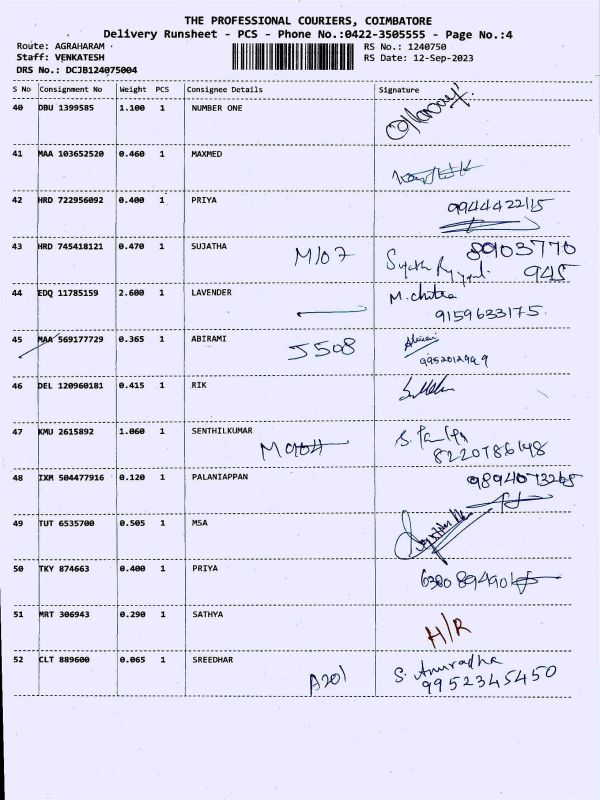 THE PROFESSIONAL COURIERS, COIMBATORE
Delivery Runsheet - PCS - Phone No.:0422-3505555 - Page No.:4
Route: AGRAHARAM RS No.: 1240750
Staff: VENKATESH RS Date: 12-Sep-2023
DRS No.: DCJB124075004
S No Consignment No Weight PCS Consignee Details Signature
40 DBU 1399585 1.100 1 NUMBER ONE
41 MAA 103652520 0.460 1 MAXMED
42 HRD 722956092 0.400 1 PRIYA
9944422115
43 HRD 745418121 0.470 1 SUJATHA
M107 89103770
945
44 EDQ 11785159 2.600 1 LAVENDER M. chitra
9159633175
45 MAA 569177729 0.365 1 ABIRAMI
J508
46 DEL 120960181 0.415 1 RIK
47 KMU 2615892 1.060 1 SENTHILKUMAR
8220786148
48 IXM 504477916 0.120 1 PALANIAPPAN 9894073265
49 TUT 6535700 0.505 1 MSA
50 TKY 874663 0.400 1 PRIYA
51 MRT 306943 0.290 1 SATHYA
H/R
52 CLT 889600 0.065 1 SREEDHAR
A201 S. Anuradha
9952345450